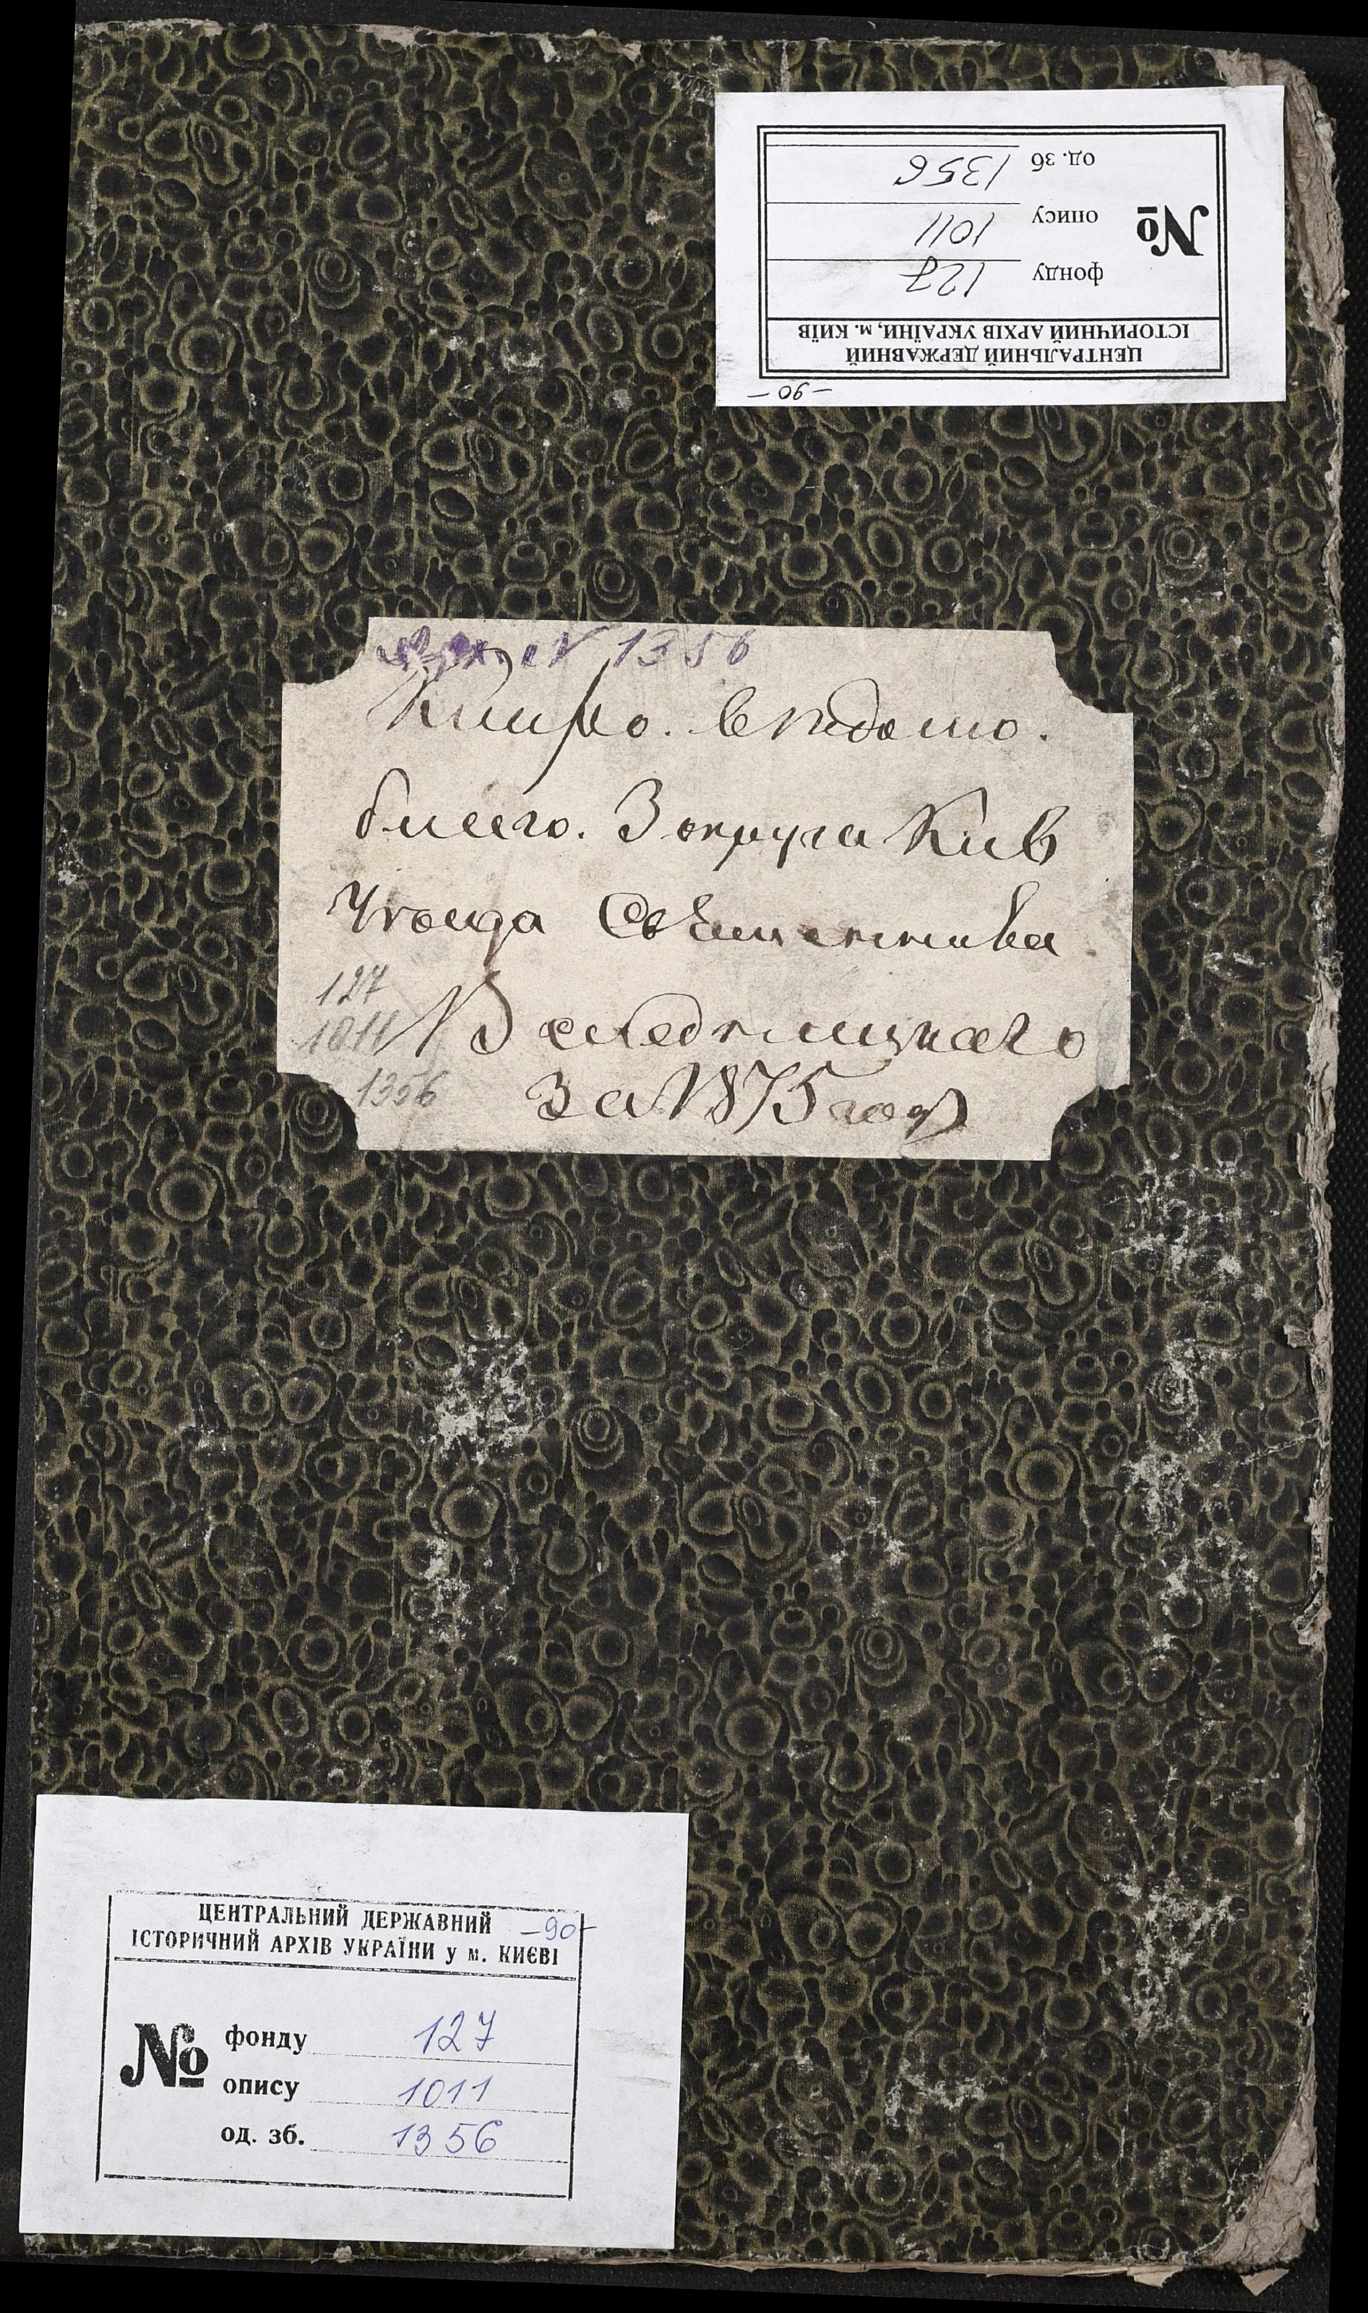 ЦЕНТРАЛЬНИЙ ДЕРЖАВНИЙ
ІСТОРИЧНИЙ АРХІВ УКРАЇНИ, м. КИЇВ
№
фонду 127
опису 1011
од. зб 1356
- 90 -
№ 1356
Клиро. ведомо.
благо. 3 округа Кив
Уезда Священника
за 1875 год
127
1011
1356
ЦЕНТРАЛЬНИЙ ДЕРЖАВНИЙ
ІСТОРИЧНИЙ АРХІВ УКРАЇНИ у м. КИЄВІ
-90-
№
фонду 127
опису 1011
од. зб. 1356